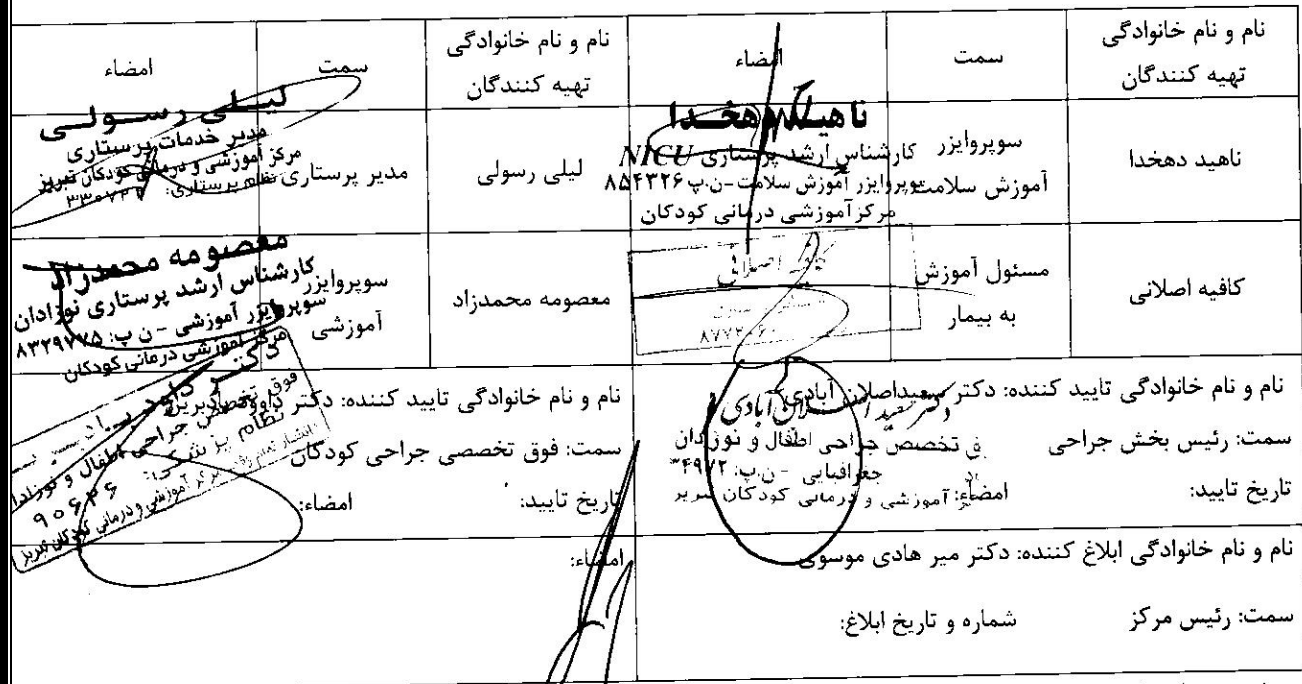 نام و نام خانوادگی
تهیه کنندگان
سمت
امضاء
نام و نام خانوادگی
تهیه کنندگان
سمت
امضاء
ناهید دهخدا
سوپروایزر
آموزش سلامت
ناهید دهخدا
کارشناس ارشد پرستاری NICU
سوپروایزر آموزش سلامت-ن.پ ۸۵۴۳۲۶
مرکز آموزشی درمانی کودکان
لیلی رسولی
مدیر پرستاری
لیلی رسولی
مدیر خدمات پرستاری
مرکز آموزشی و درمانی کودکان تبریز
نظام پرستاری:
کافیه اصلانی
مسئول آموزش
به بیمار
اصلانی
معصومه محمدزاد
سوپروایزر
آموزشی
معصومه محمدزاد
کارشناس ارشد پرستاری نوزادان
سوپروایزر آموزشی - ن پ:
مرکز آموزشی درمانی کودکان
نام و نام خانوادگی تایید کننده: دکتر سعیداصلان آبادی
سمت: رئیس بخش جراحی
تاریخ تایید:
امضاء:
دکتر سعید اصلان آبادی
فوق تخصص جراحی اطفال و نوزادان
آموزشی و درمانی کودکان تبریز
نام و نام خانوادگی تایید کننده: دکتر داوود بادبرین
سمت: فوق تخصصی جراحی کودکان
تاریخ تایید:
امضاء:
دکتر داود
فوق تخصص جراحی اطفال و نوزادان
نظام پزشکی:
۹۰۶۳۶
مرکز آموزشی و درمانی کودکان تبریز
نام و نام خانوادگی ابلاغ کننده: دکتر میر هادی موسوی
سمت: رئیس مرکز
شماره و تاریخ ابلاغ:
امضاء: